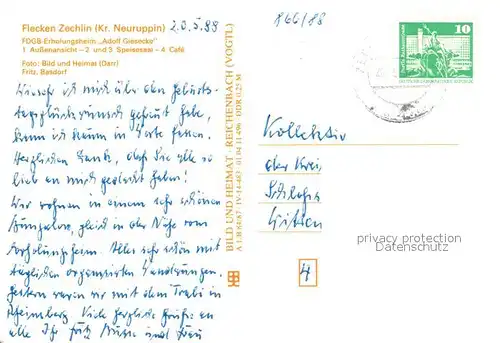 Flecken Zechlin (Kr. Neuruppin) 20.5.88
FDGB-Erholungsheim „Adolf Giesecke“
1 Außenansicht - 2 und 3 Speisesaal - 4 Café
Foto: Bild und Heimat (Darr)
Fritz, Basdorf
Wie sehr ich mich über den Geburts-
tagsglückwunsch gefreut habe,
kann ich kaum in Worte fassen.
Herzlichen Dank, daß Sie alle so
lieb an mich gedacht haben!
Wir wohnen in einem sehr schönen
Bungalow, gleich in der Nähe vom
Erholungsheim. Alles sehr schön mit
täglichen organisierten Wanderungen,
gestern waren wir mit dem Trabi in
Rheinsberg. Viele herzliche Grüße an
alle Ihr Fritz und Frau
BILD UND HEIMAT · REICHENBACH (VOGTL)
866/88
10
Kollektiv
der Krei
4
privacy protection
Datenschutz